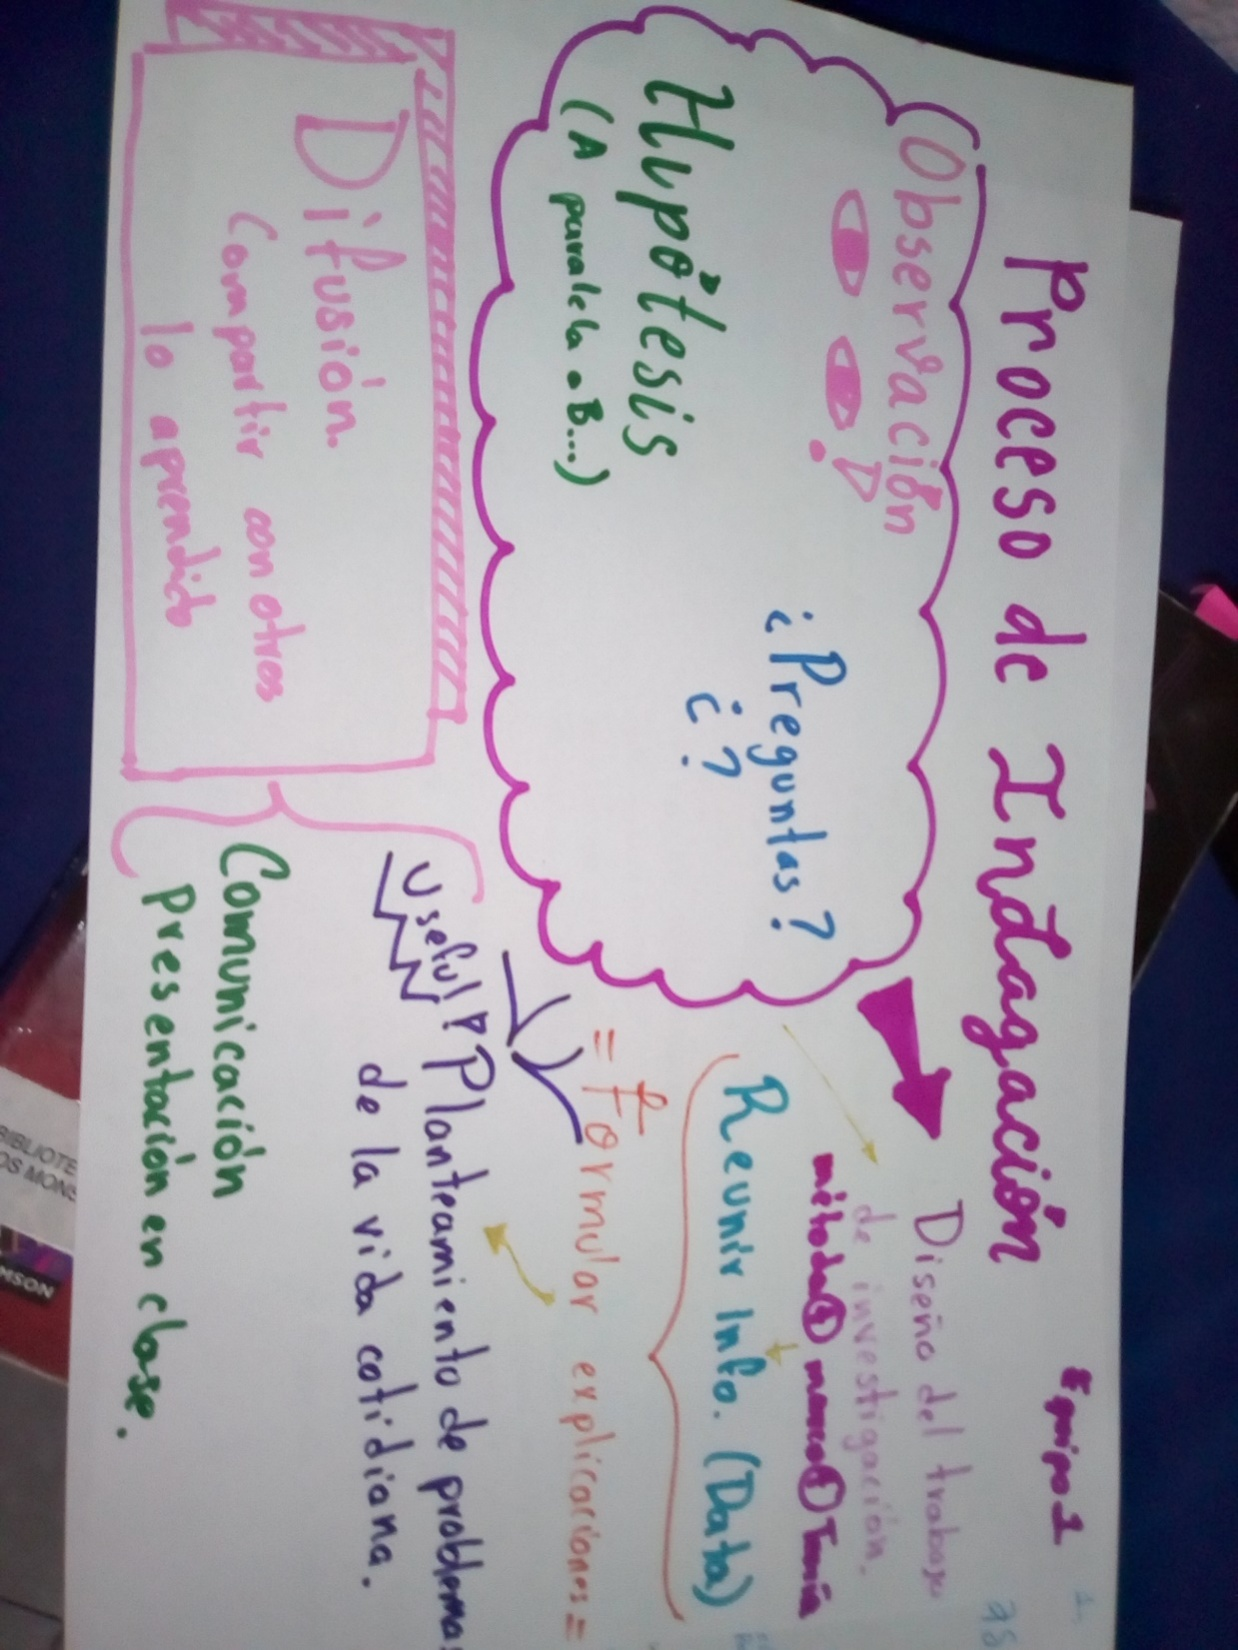 Equipo 1
Proceso de Indagación
Observación
¿Preguntas?
¿?
Hipótesis
(A paralela a B...)
Diseño del trabajo
de investigación.
método marco Teoría
Reunir Info. (Data)
= Formular explicaciones =
Useful! Planteamiento de problemas
de la vida cotidiana.
Difusión.
Compartir con otros
lo aprendido
Comunicación
Presentación en clase.
BIBLIOTE
OS MONS
MSON